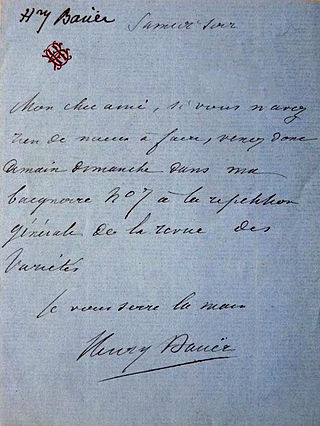 Hry Bauër
Samedi soir
Mon cher ami, si vous n'avez
rien de mieux à faire, venez donc
demain dimanche dans ma
baignoire No 7 à la répétition
générale de la revue des
Variétés
Je vous serre la main
Henry Bauër